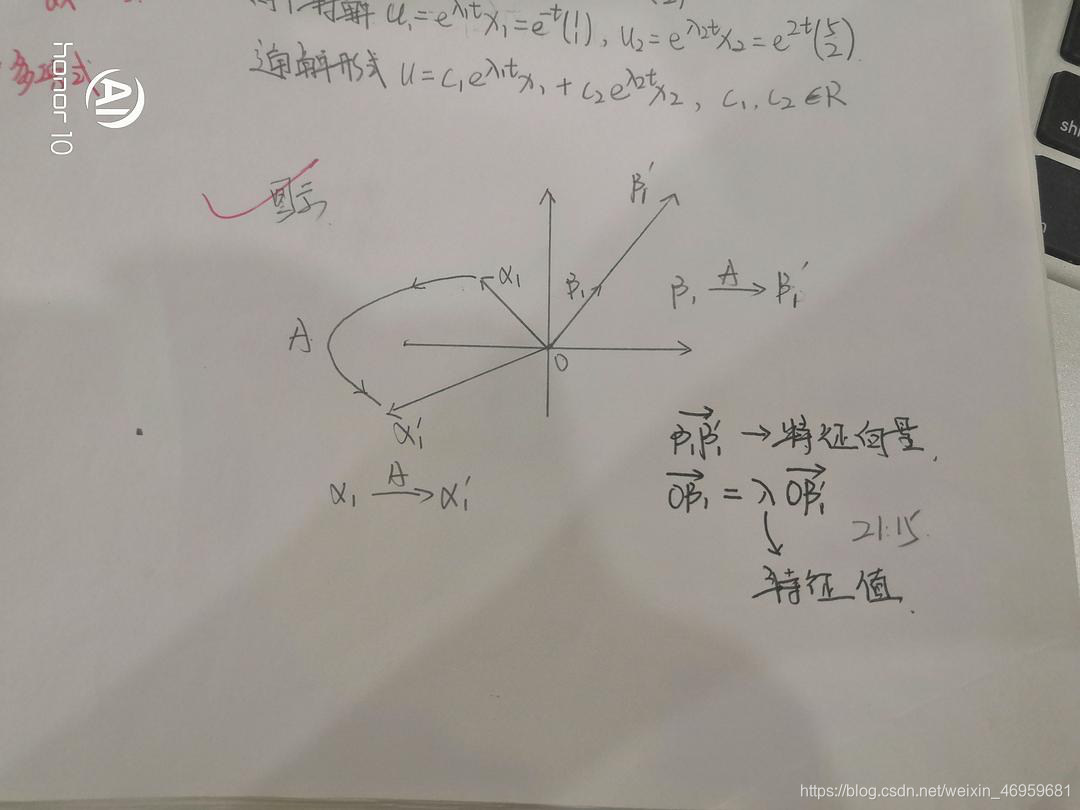 解 u₁=e^{λ₁t}x₁=e^{-t}(1 1), u₂=e^{λ₂t}x₂=e^{2t}(5 2).
多项式
通解形式 u=c₁e^{λ₁t}x₁+c₂e^{λ₂t}x₂, c₁,c₂∈R
AI
honor 10
图示
β₁'
α₁
β₁
β₁ A→ β₁'
A
O
α₁'
β₁β₁' → 特征向量.
α₁ A→ α₁'
OB₁ = λ OB₁'
21:15.
特征值.
shi
https://blog.csdn.net/weixin_46959681